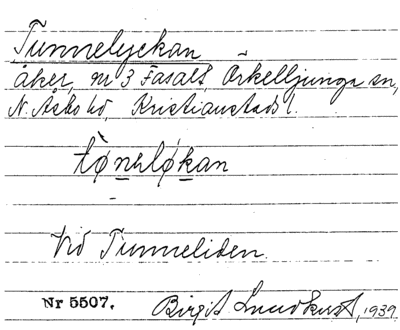 Tunnelyckan
åker, nr 3 Fasalt, Örkelljunga sn,
N. Åsbo hd, Kristianstads l.
Vid Tunneliden.
Nr 5507. Birgit Lundkvist, 1939